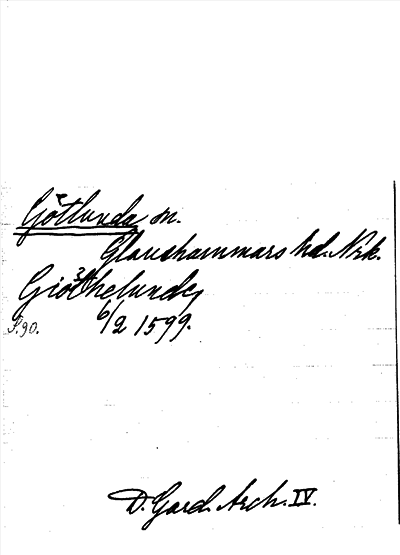 Götlunda sn.
Glanshammars hd. Nrk.
Giötthelundh
S. 90. 6/2 1599.
D. Gard. Arch. IV.